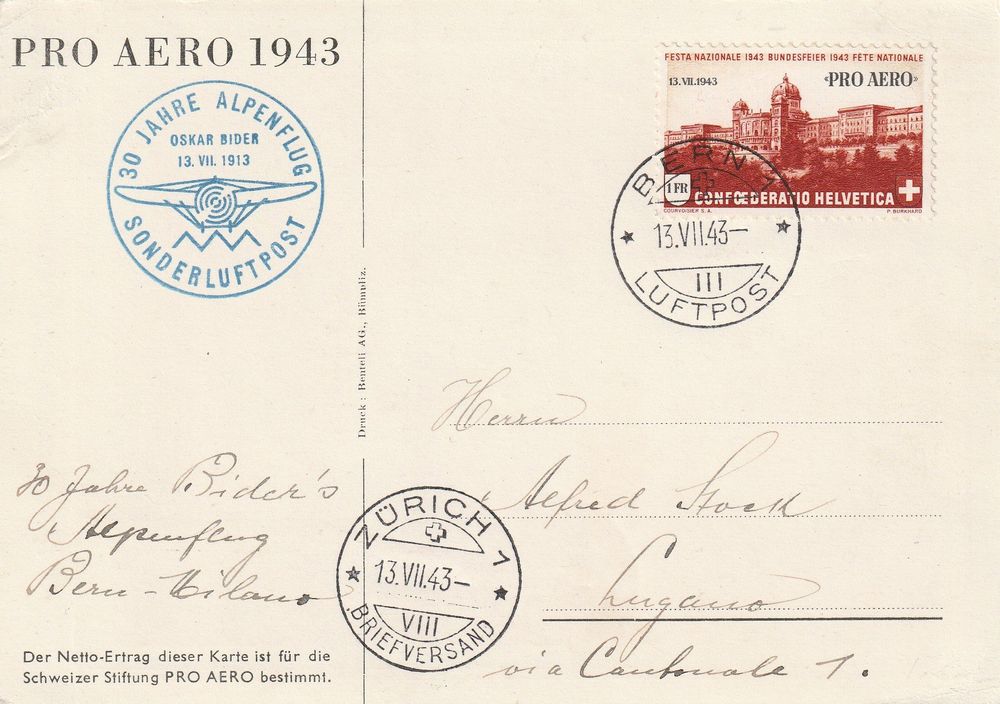 PRO AERO 1943
30 JAHRE ALPENFLUG
OSKAR BIDER
13. VII. 1913
SONDERLUFTPOST
FESTA NAZIONALE 1943 BUNDESFEIER 1943 FÊTE NATIONALE
13.VII.1943 «PRO AERO»
1 FR
CONFŒDERATIO HELVETICA
COURVOISIER S.A. P. BURKHARD
BERN 1
13.VII.43—
III
LUFTPOST
Druck: Benteli AG., Bümpliz.
Herrn
Alfred Stock
Lugano
via Cantonale 1.
30 Jahre Bider's
Alpenflug
Bern - Milano
ZÜRICH 1
13.VII.43—
VIII
BRIEFVERSAND
Der Netto-Ertrag dieser Karte ist für die
Schweizer Stiftung PRO AERO bestimmt.